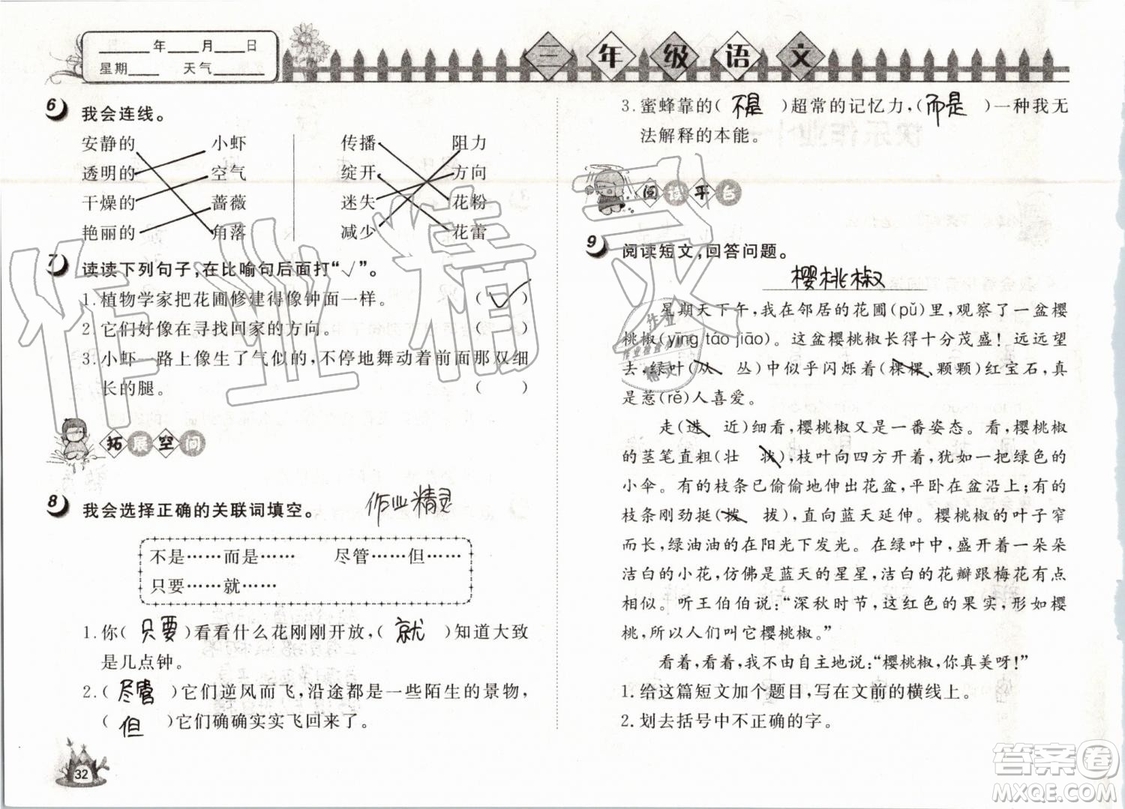 ____年__月__日
星期____ 天气____
三年级语文
6 我会连线。
安静的 小虾 传播 阻力
透明的 空气 绽开 方向
干燥的 蔷薇 迷失 花粉
艳丽的 角落 减少 花蕾
7 读读下列句子,在比喻句后面打“√”。
1.植物学家把花圃修建得像钟面一样。 ( √ )
2.它们好像在寻找回家的方向。 ( )
3.小虾一路上像生了气似的,不停地舞动着前面那双细
长的腿。 ( )
拓展空间
8 我会选择正确的关联词填空。 作业精灵
不是……而是…… 尽管……但……
只要……就……
1.你( 只要 )看看什么花刚刚开放,( 就 )知道大致
是几点钟。
2.( 尽管 )它们逆风而飞,沿途都是一些陌生的景物,
( 但 )它们确确实实飞回来了。
32
3.蜜蜂靠的( 不是 )超常的记忆力,( 而是 )一种我无
法解释的本能。
阅读平台
9 阅读短文,回答问题。
樱桃椒
星期天下午,我在邻居的花圃(pǔ)里,观察了一盆樱
桃椒(yīng táo jiāo)。这盆樱桃椒长得十分茂盛!远远望
去,绿叶(从 丛)中似乎闪烁着(棵棵、颗颗)红宝石,真
是惹(rě)人喜爱。
走(进 近)细看,樱桃椒又是一番姿态。看,樱桃椒
的茎笔直粗(壮 状),枝叶向四方开开,犹如一把绿色的
小伞。有的枝条已偷偷地伸出花盆,平卧在盆沿上;有的
枝条刚劲挺(拨 拔),向蓝天延伸。樱桃椒的叶子窄而
长,绿油油的在阳光下发光。在绿叶中,盛开着一朵朵
洁白的小花,仿佛是蓝天的星星,洁白的花瓣跟梅花有几
分相似。听王伯伯说:“深秋时节,这红色的果实,形似樱
桃,所以人们叫它樱桃椒。”
看着,看着,我不由自主地说:“樱桃椒,你真美呀!”
1.给这篇短文加个题目,写在文前的横线上。
2.划去括号中不正确的字。
作业精灵
答案圈
MXQE.COM